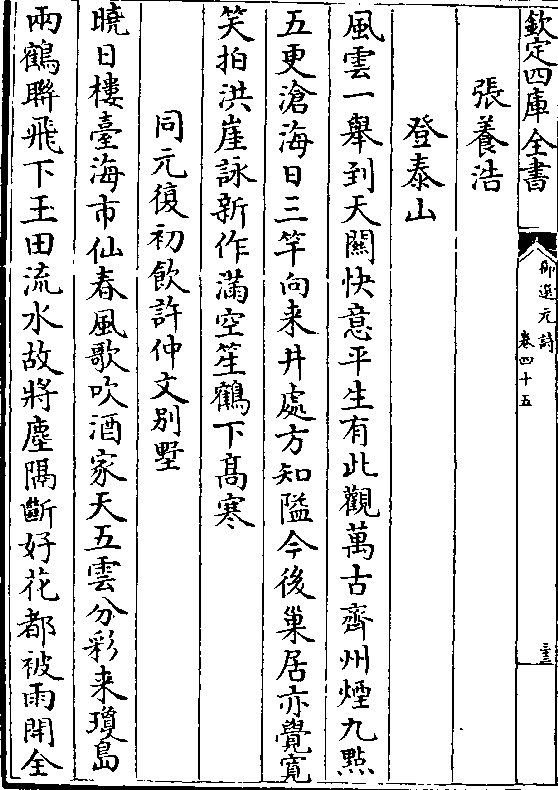 欽定四庫全書
御選元詩
卷四十五
張養浩
登泰山
風雲一舉到天關快意平生有此觀萬古齊州煙九點
五更滄海日三竿向来井處方知隘今後巢居亦覺寛
笑拍洪崖詠新作滿空笙鶴下髙寒
同元復初飲許仲文别墅
曉日樓臺海市仙春風歌吹酒家天五雲分彩来瓊島
兩鶴聯飛下玉田流水故將塵隔斷好花都被雨開全